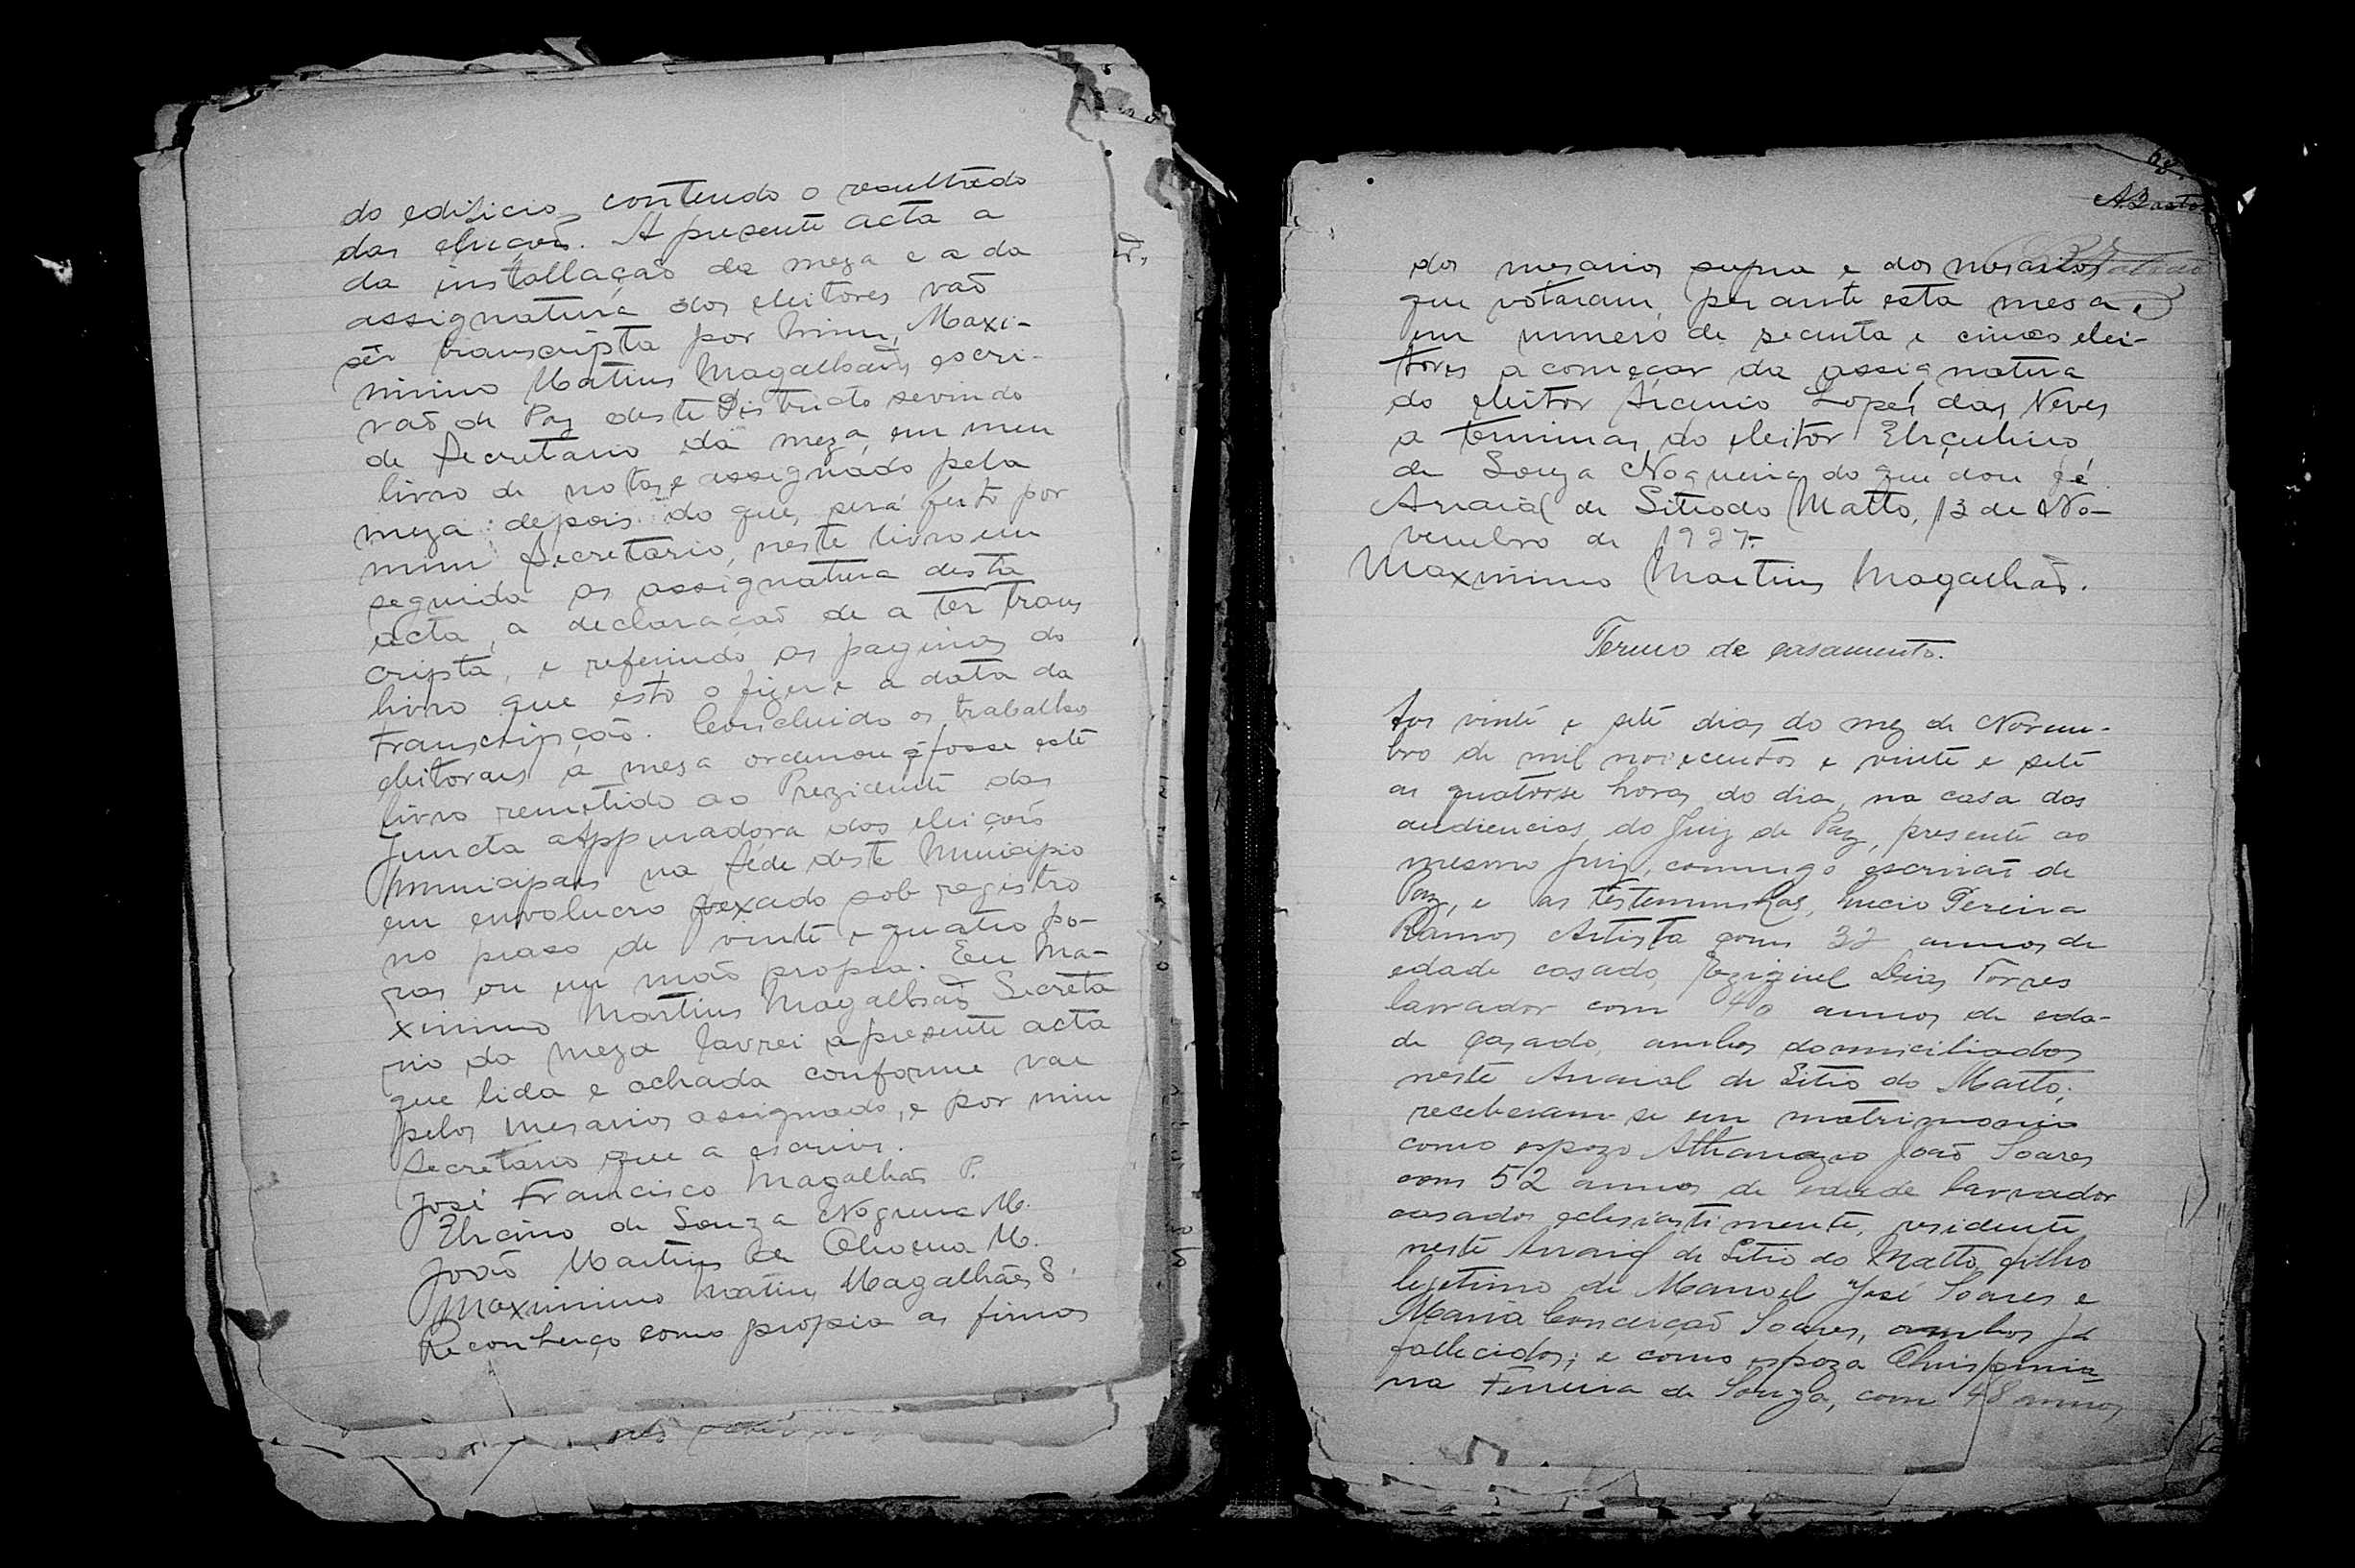 do edificio, contendo o resultado
das eleiçoês. A presente acta a
da installação da meza e a da
assignatura dos eleitores vaõ
sêr transcripta por mim, Maxi-
mino Martins Magalhaẽs escri-
vaõ de Paz deste Districto sevindo
de Secretario da meza em meu
livro de notas, e assignado pela
meza: depois do que, será feito por
mim Secretario, neste livro em
seguida as assignatura desta
acta, a declaraçaõ de a ter trans
cripta, e referindo as paginas do
livro que isto o fizer e a data da
transcripçaõ. Concluido os trabalho
eleitoraes a mesa ordenou q̃ fosse este
livro remetido ao Prezidente das
Juncta Appuradora dos eleiçoẽs
municipaes na Séde deste Municipio
em envolucro fexado sob registro
no praso de vinte e quatro ho-
ras ou em maõ propria. Eu Ma-
ximino Martins Magalhaẽs Secreta
rio da meza lavrei a presente acta
que lida e achada conforme vae
pelos mesarios assignado, e por mim
Secretario que a escrivi.
José Francisco Magalhães P.
de Souza Nogueira M.
João Martins de Oliveira M.
Maximino Martins Magalhães S.
Reconheço como propria as firmas
A. Bastos
dos mesarios supra e dos mesarios
que votaram perante esta mesa e
em numero de secenta e cinco elei-
tores a começar da assignatura
do eleitor Arcenio Lopes das Neves
a terminar do eleitor
de Souza Nogueira do que dou fé
Arraial de Sitio do Matto, 13 de No-
vembro de 1927.
Maximino Martins Magalhães.
Termo de casamento.
Aos vinte e sete dias do mez de Novem-
bro de mil novecentos e vinte e sete
as quatorse horas do dia, na casa das
audiencias do Juiz de Paz, presente ao
mesmo juiz, commigo escrivaõ de
Paz, e as testemunhas, Lucio Pereira
Ramos Artista com 32 annos de
edade casado, Eziquiel Dias Torres
lavrador com 40 annos de eda-
de casado, ambos domiciliados
neste Arraial de Sitio do Matto;
receberam-se em matrimonio
como espozo Athanazio João Soares
com 52 annos de edade lavrador
casados eclesiastimente, residente
neste Arraial de Sitio do Matto, filho
legetimo de Manoel José Soares e
Maria Conceiçaõ Soares, ambos já
fallecidos; e como espoza Chrispinia-
na Ferreira de Souza, com 48 annos